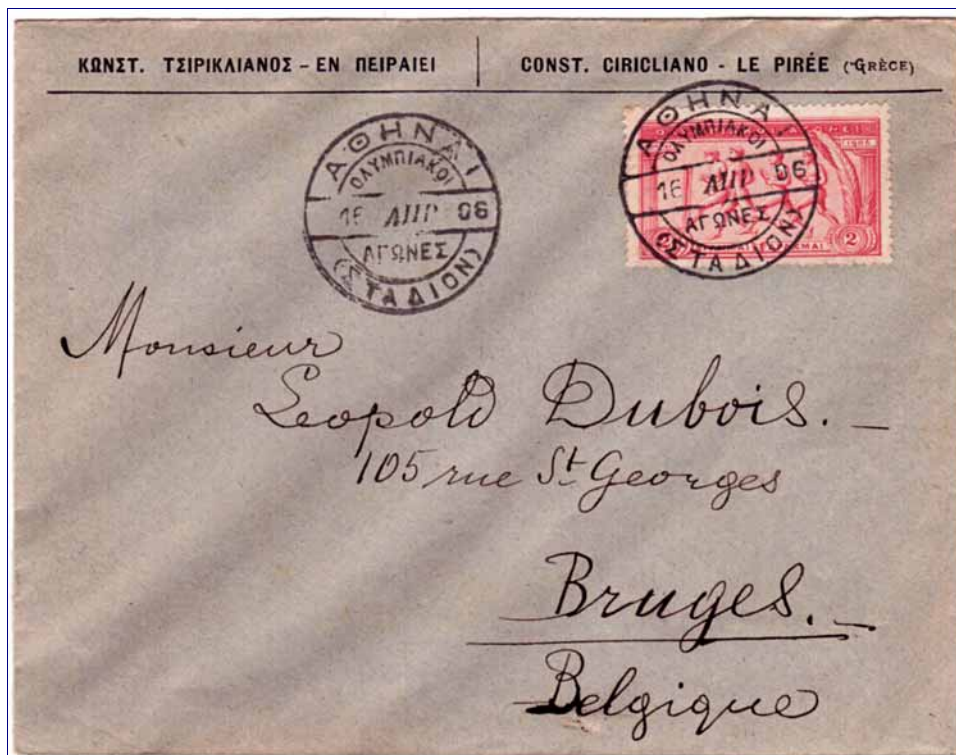 ΚΩΝΣΤ. ΤΣΙΡΙΚΛΙΑΝΟΣ – ΕΝ ΠΕΙΡΑΙΕΙ
CONST. CIRICLIANO - LE PIRÉE (GRÈCE)
ΑΘΗΝΑΙ
ΟΛΥΜΠΙΑΚΟΙ
16 ΑΠΡ 06
ΑΓΩΝΕΣ
(ΣΤΑΔΙΟΝ)
ΑΘΗΝΑΙ
ΟΛΥΜΠΙΑΚΟΙ
16 ΑΠΡ 06
ΑΓΩΝΕΣ
(ΣΤΑΔΙΟΝ)
2
Monsieur
Leopold Dubois. –
105 rue St Georges
Bruges. –
Belgique